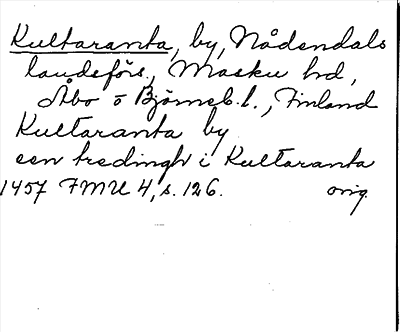 Kultaranta, by, Nådendals
landsförs., Masku hd,
Åbo o Björneb. l., Finland
Kultaranta by
een tredingh i Kultaranta
1457 FMU 4, s. 126. orig.